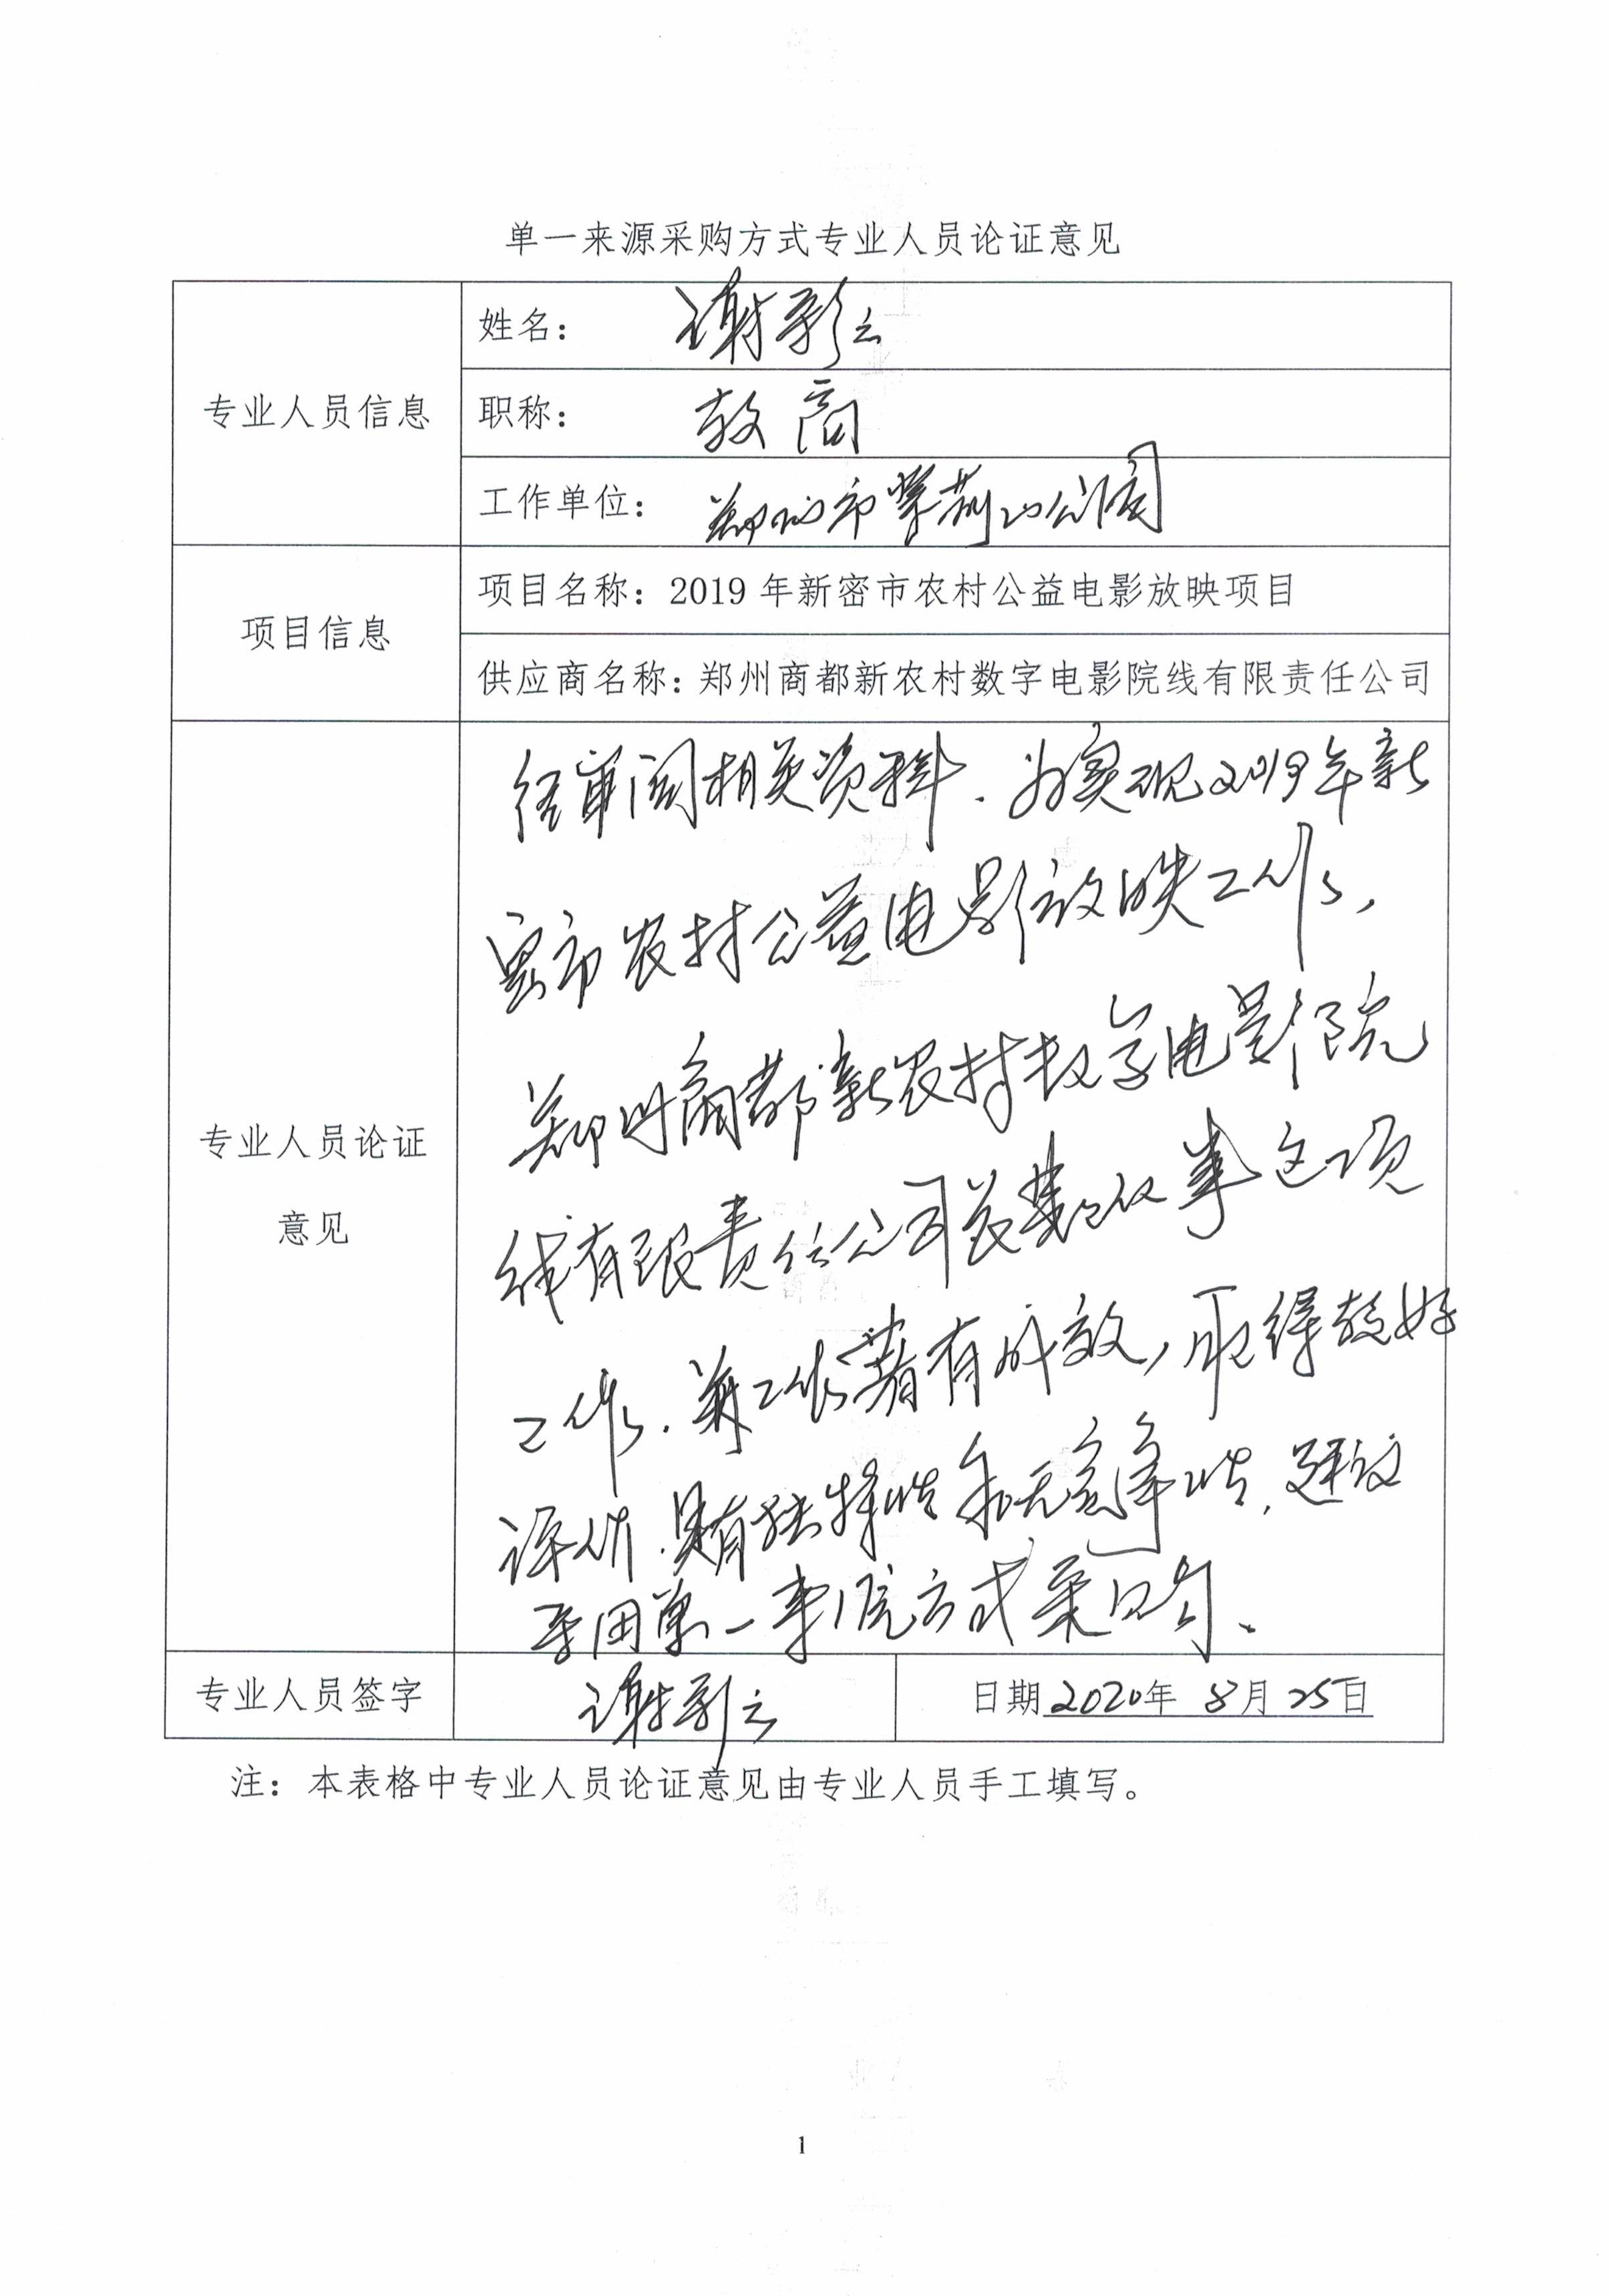 单一来源采购方式专业人员论证意见
专业人员信息
姓名： 谢彩云
职称： 教高
工作单位： 郑州市紫荆山公园
项目信息
项目名称：2019年新密市农村公益电影放映项目
供应商名称：郑州商都新农村数字电影院线有限责任公司
专业人员论证
意见
经审阅相关资料．为实现2019年新
密市农村公益电影放映工作，
郑州商都新农村数字电影院
线有限责任公司长期从事这项
工作．并工作著有成效，取得较好
评价．具有独特性和无竞争性，建议
采用单一来源方式采购．
专业人员签字
谢彩云
日期2020年 8月 25日
注：本表格中专业人员论证意见由专业人员手工填写。
1